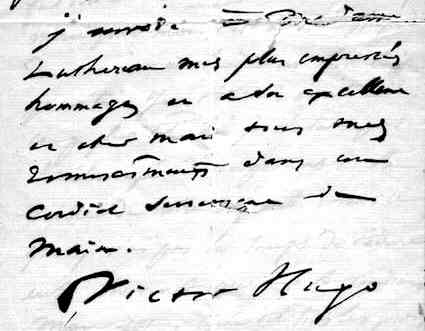 j'envoie à Madame
Luthereau mes plus empressés
hommages et à son excellent
et cher mari tous mes
remerciments dans un
cordial serrement de
main.
Victor Hugo